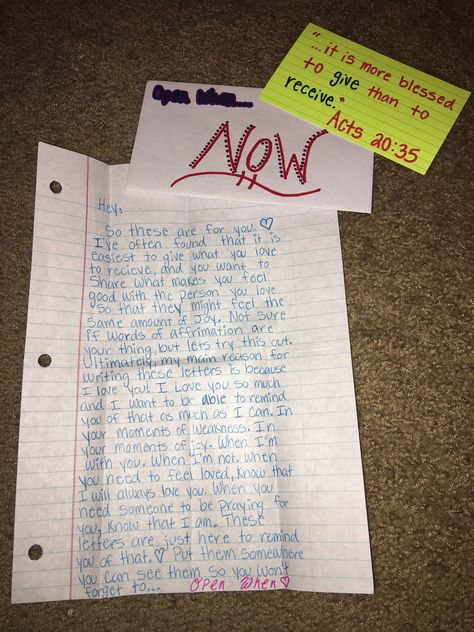 "...it is more blessed
to give than to
receive."
Acts 20:35
Open When....
NOW
Hey,
So these are for you. ♡
I've often found that it is
easiest to give what you love
to recieve, and you want to
share what makes you feel
good with the person you love
so that they might feel the
same amount of joy. Not sure
if words of affrimation are
your thing, but lets try this out.
Ultimately, my main reason for
writing these letters is because
I love you! I Love you so much
and I want to be able to remind
you of that as much as I can. In
your moments of weakness. In
your moments of joy. When I'm
with you. When I'm not. When
you need to feel loved, know that
I will always love you. When you
need someone to be praying for
you, know that I am. These
letters are just here to remind
you of that. ♡ Put them somewhere
you can see them so you won't
forget to... Open When ♡